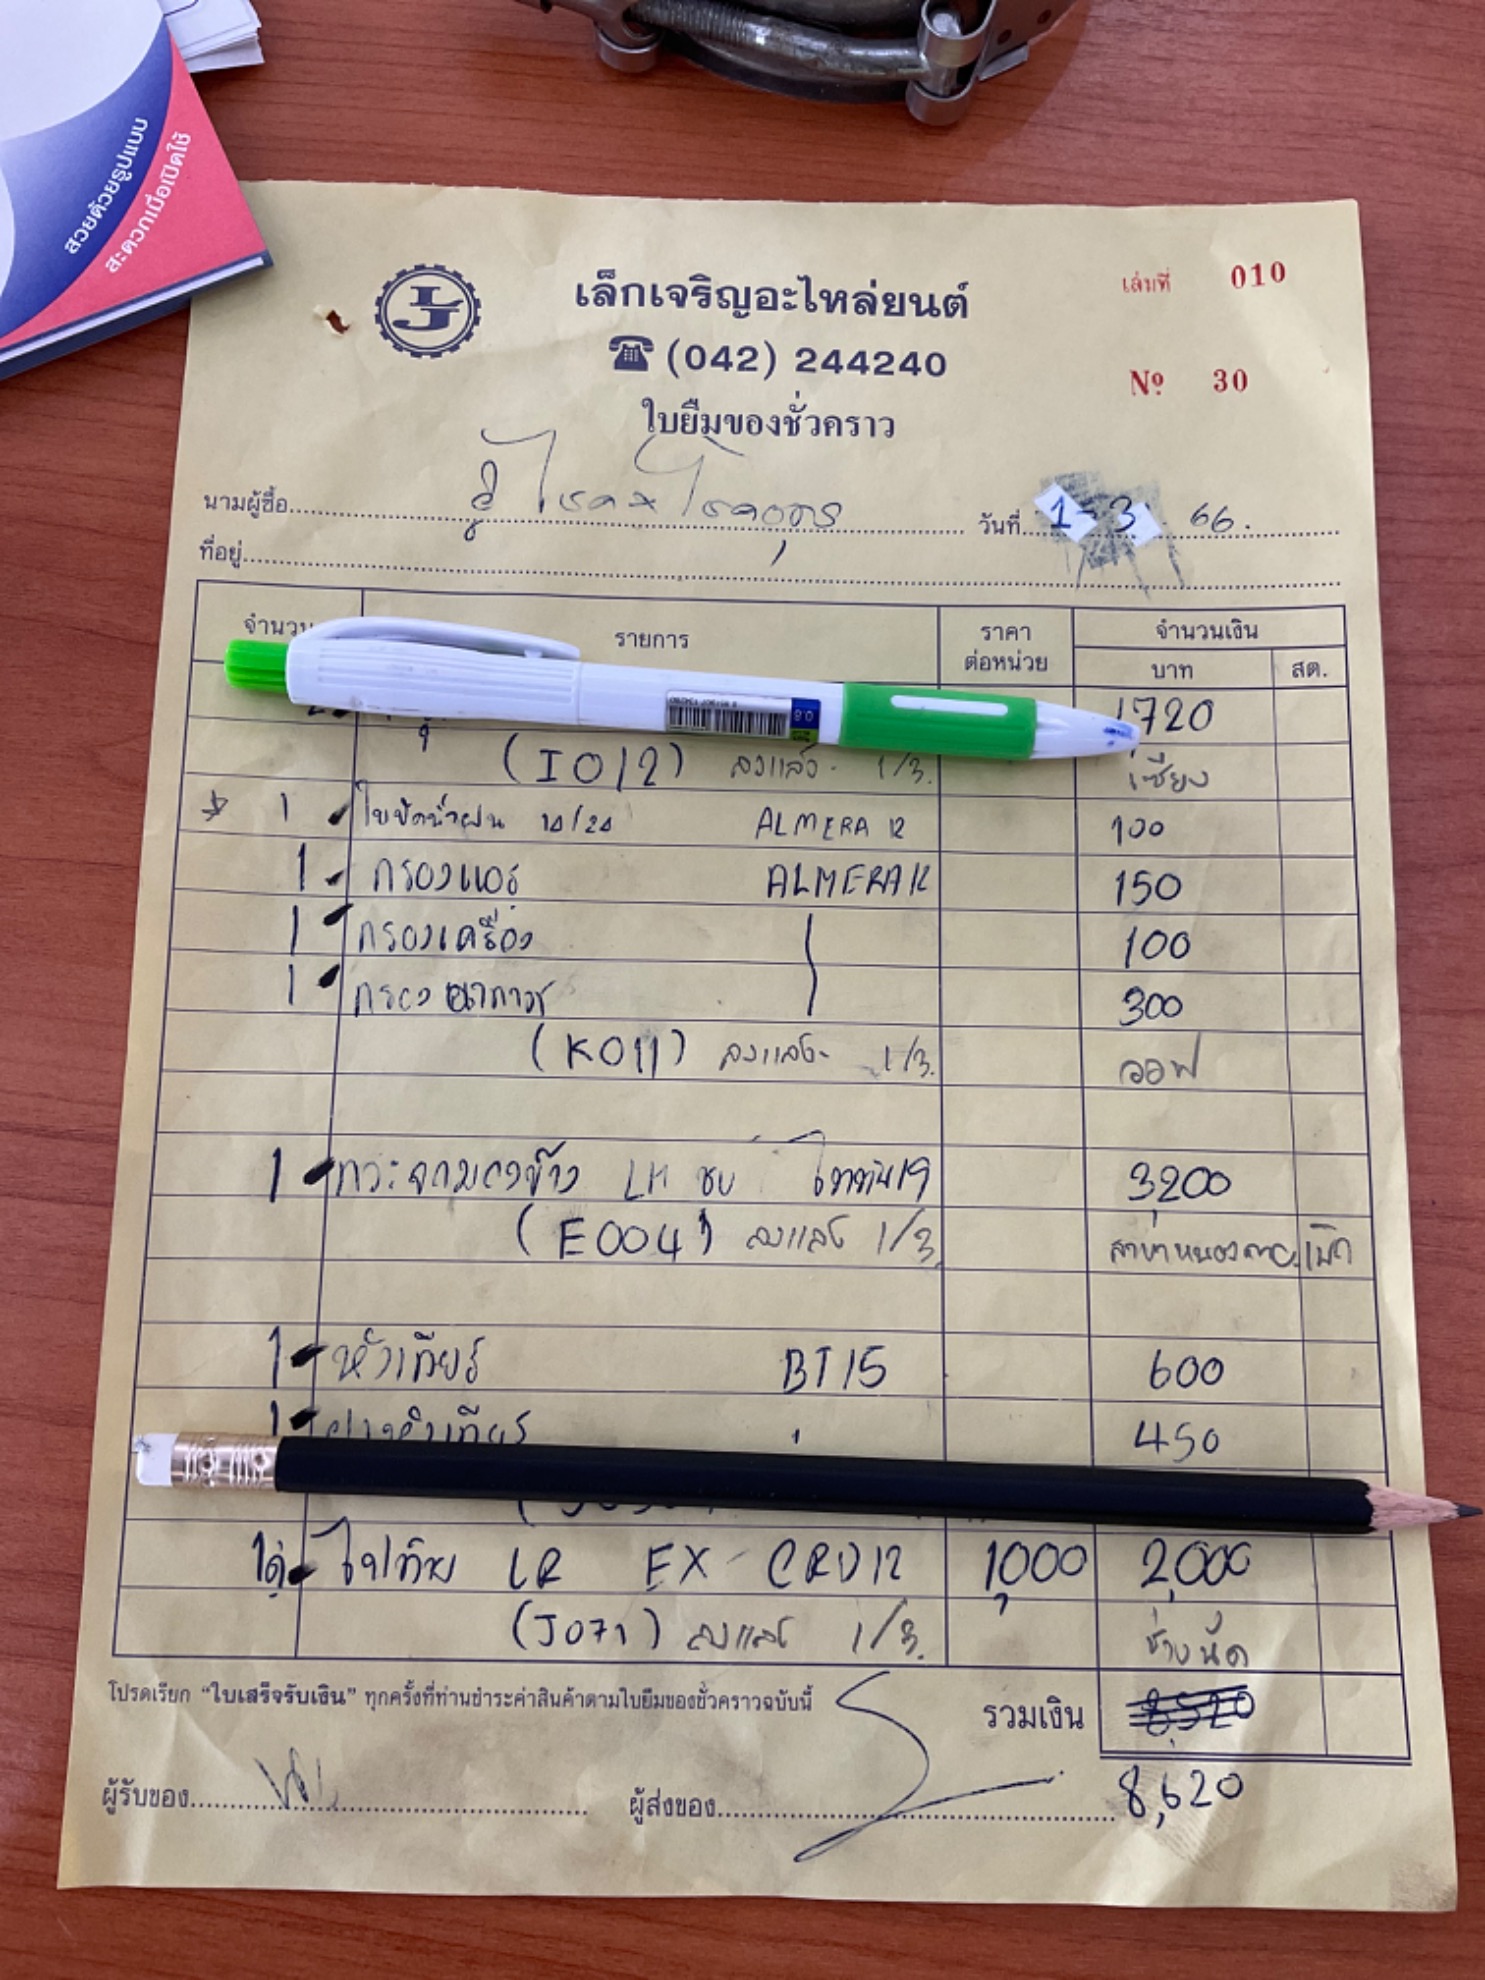 สวยด้วยรูปแบบ
สะดวกเมื่อเปิดใช้
เล็กเจริญอะไหล่ยนต์
เล่มที่ 010
☎ (042) 244240
Nº 30
ใบยืมของชั่วคราว
นามผู้ซื้อ วันที่ 1-3-66.
ที่อยู่
รายการ ราคาต่อหน่วย จำนวนเงิน
บาท สต.
1720
(I012) ลงแล้ว 1/3. เซียง
1 ใบปัดน้ำฝน 14/24 ALMERA 12 100
1 กรองแอร์ ALMERA 12 150
1 กรองเครื่อง 100
1 กรองอากาศ 300
(K011) ลงแล้ว 1/3. ออฟ
1 กระจกมองข้าง LH ชุบ ไททัน19 3,200
(E004) ลงแล้ว 1/3. สาขาหนองคาย เบิก
1 หัวเกียร์ BT15 600
1 450
1คู่ ไฟท้าย LR EX CRV12 1,000 2,000
(J071) ลงแล้ว 1/3. ช่างนัด
โปรดเรียก “ใบเสร็จรับเงิน” ทุกครั้งที่ท่านชำระค่าสินค้าตามใบยืมของชั่วคราวฉบับนี้
รวมเงิน 8,520
ผู้รับของ ผู้ส่งของ 8,620